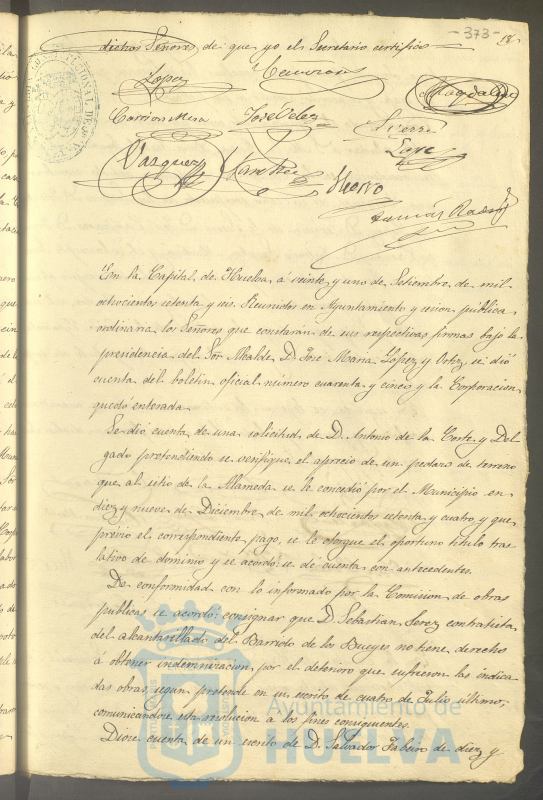 -373-
dichos Señores de que yo el Secretario certifico
Lopez
Magdalena
Carrion Mesa
José Velez
Sierra
Vazquez
Sanchez
Hierro
En la Capital de Huelva, á veinte y uno de Setiembre de mil
ochocientos setenta y seis. Reunidos en Ayuntamiento y sesion publica
ordinaria los Señores que constarán de sus respectivas firmas bajo la
presidencia del Sor. Alcalde D. José Maria Lopez y Ortiz, se dió
cuenta del boletin oficial número cuarenta y cinco y la Corporacion
quedó enterada.
Se dió cuenta de una solicitud de D. Antonio de la Corte y Del-
gado pretendiendo se verifique el aprecio de un pedazo de terreno
que al sitio de la Alameda se le concedió por el Municipio en
diez y nueve de Diciembre de mil ochocientos setenta y cuatro y que,
previo el correspondiente pago, se le otorgue el oportuno titulo tras
lativo de dominio y se acordó: se dé cuenta con antecedentes.
De conformidad con lo informado por la Comision de obras
publicas se acordó: consignar que D. Sebastian Perez contratista
del alcantarillado del Barrido de los Bueyes no tiene derecho
á obtener indemnizacion por el deterioro que sufrieron las indica
das obras, segun pretende en su escrito de cuatro de Julio último;
comunicandose esta resolucion a los fines consiguientes.
Diose cuenta de un escrito de D. Salvador de diez y
Ayuntamiento de
HUELVA